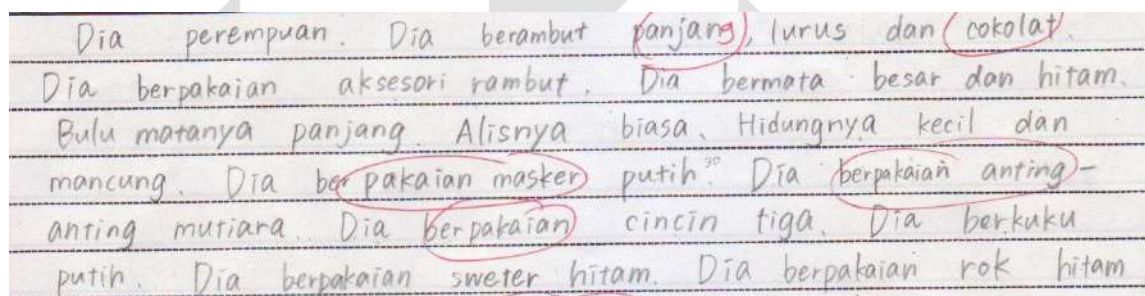 Dia perempuan. Dia berambut panjang, lurus dan cokolat.
Dia berpakaian aksesori rambut. Dia bermata besar dan hitam.
Bulu matanya panjang. Alisnya biasa. Hidungnya kecil dan
mancung. Dia berpakaian masker putih. 30 Dia berpakaian anting-
anting mutiara. Dia berpakaian cincin tiga. Dia berkuku
putih. Dia berpakaian sweter hitam. Dia berpakaian rok hitam